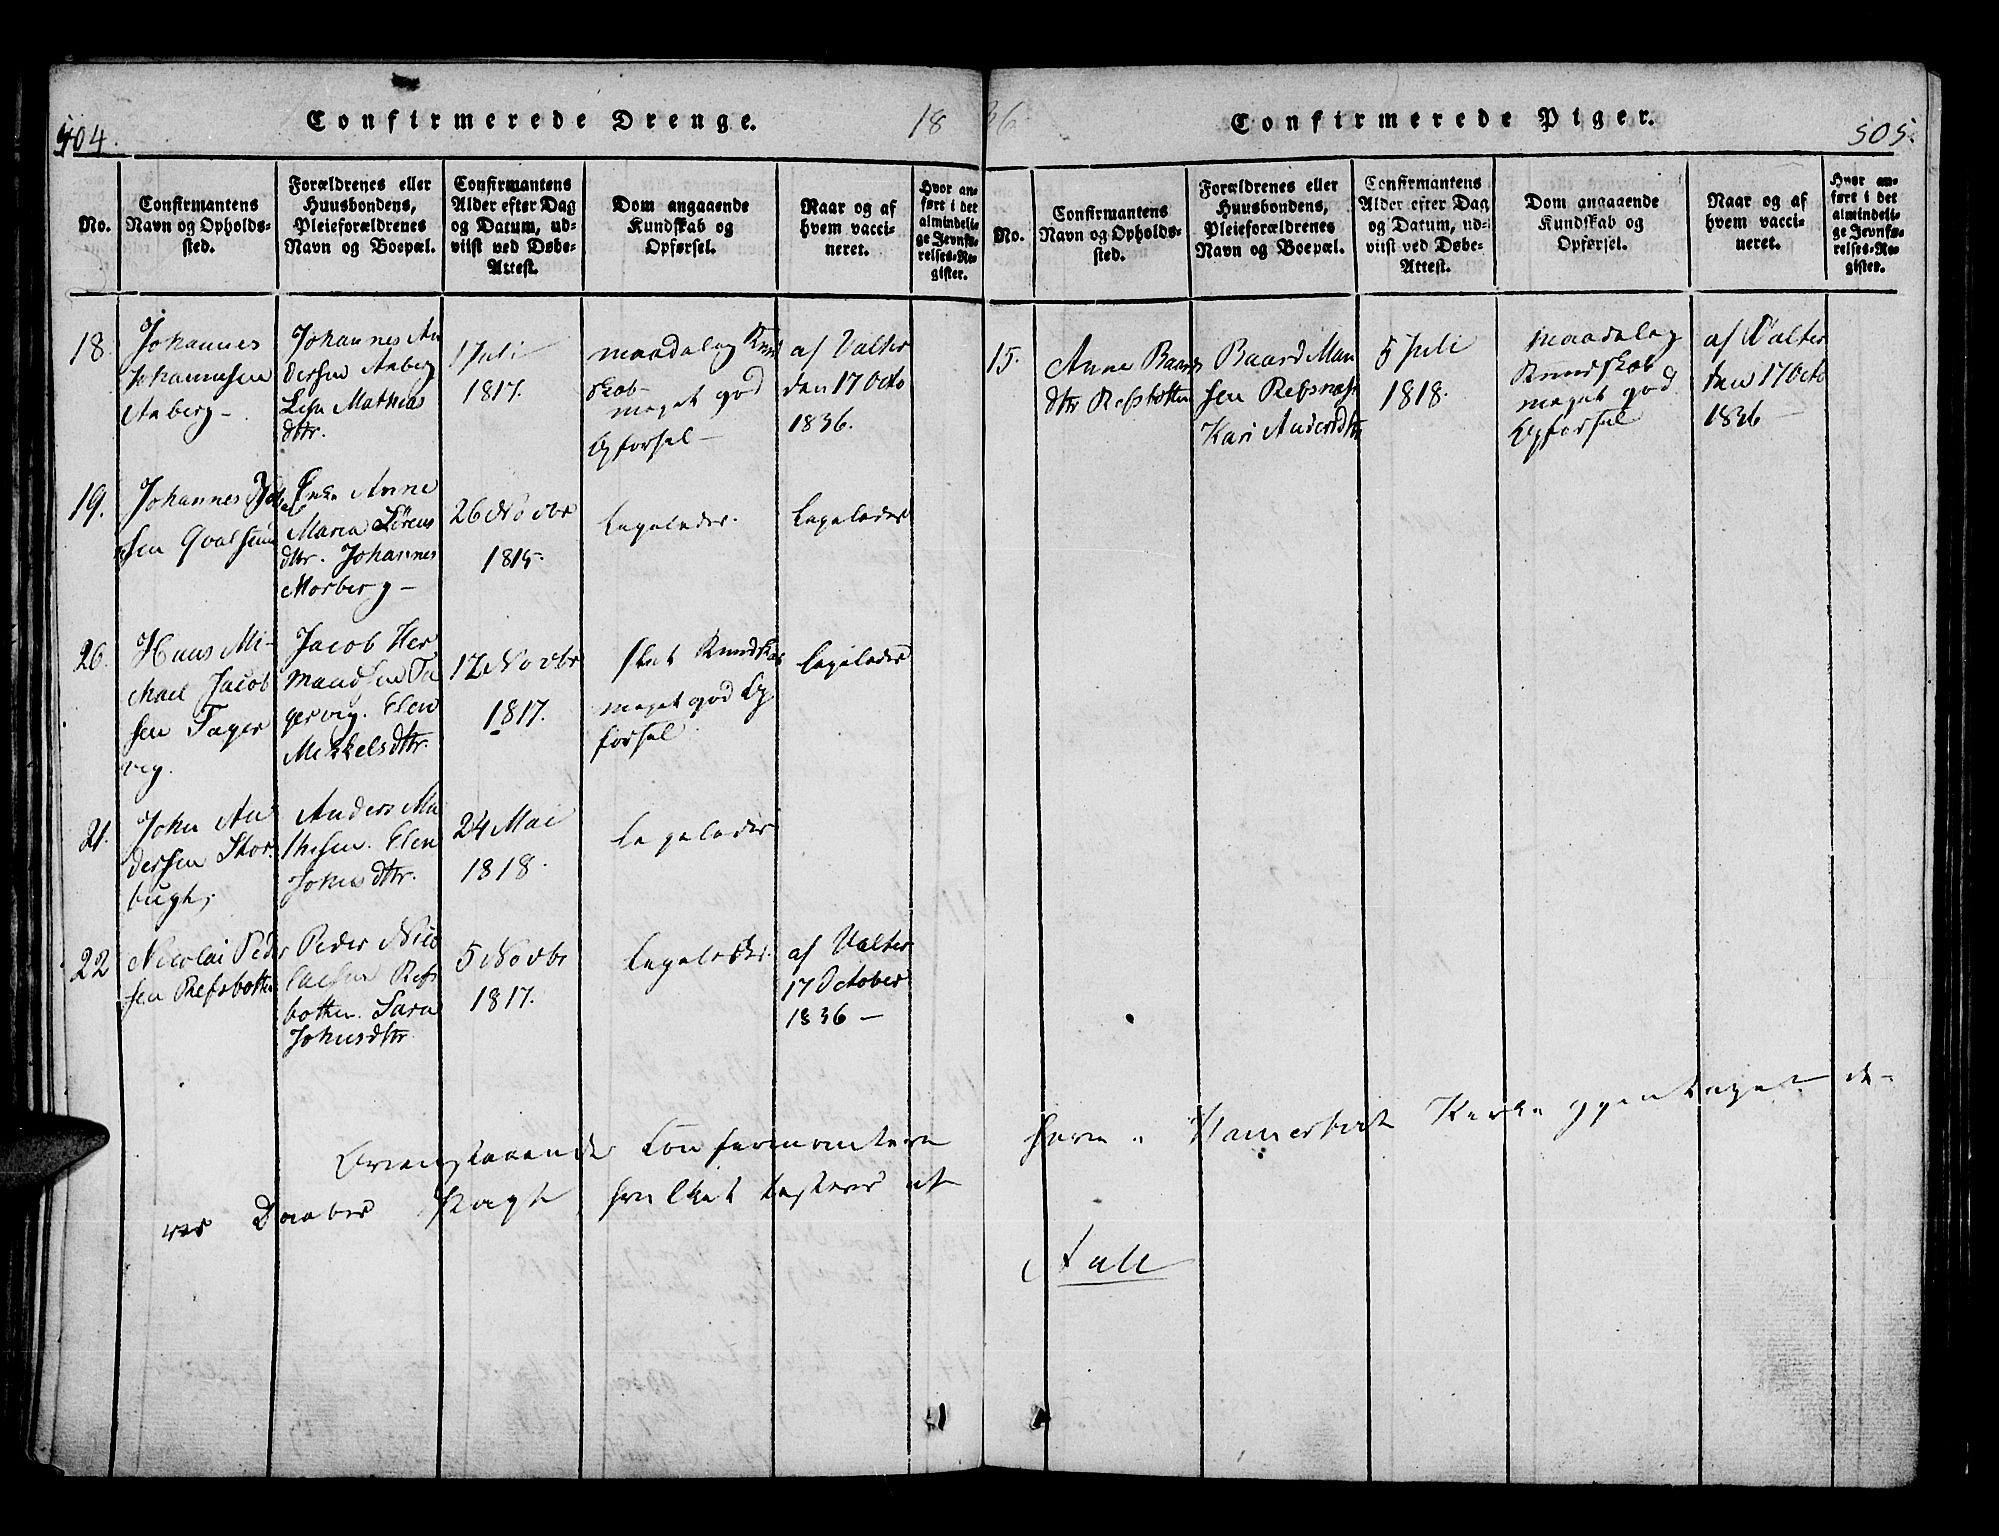 504.
Confirmerede Drenge.
18
No.
Confirmantens
Navn og Opholds-
sted.
Forældrenes eller
Huusbondens,
Pleieforældrenes
Navn og Boepæl.
Confirmantens
Alder efter Dag
og Datum, ud-
viist ved Døbe-
Attest.
Dom angaaende
Kundskab og
Opførsel.
Naar og af
hvem vacci-
neret.
Hvor an-
ført i det
almindeli-
ge Jevnfø-
relses-Re-
gister.
18.
Johannes
Johannesen
Aaberg-
Johannes An
dersen Aaberg
Mathias
dttr.
1 Juli
1817.
maadelig Kund
skab-
meget god
Opførsel-
af Valter
den 17 Octo
1836.
19.
Johannes
sen Qvalsund
Enke Anne
Maria Sørens
dttr. Johannes
Morberg-
26 Novbr
1815.
Ligeledes.
Ligeledes
20.
Hans Mi-
chael Jacob
sen Tager
vig.
Jacob Her
mandsen Ta
gervig. Elen
Mikkelsdttr.
12 Novbr
1817.
slet Kundskab
meget god Op
førsel
Ligeledes
21.
John An
dersen Stor
bugt,
Anders Ma
thisen. Elen
Johnsdttr.
24 Mai
1818.
Ligeledes
22
Nicolai Peder
sen Refsbotten
Peder Nico
laisen Refs
botten. Sara
Johnsdttr
5 Novbr
1817.
Ligeledes.
af Valter
17 October
1836-
Ovenstaaende Confirmantere
Daabes Pagt, hvilket testeres af
36
Confirmerede Piger.
505.
No.
Confirmantens
Navn og Opholds-
sted.
Forældrenes eller
Huusbondens,
Pleieforældrenes
Navn og Boepæl.
Confirmantens
Alder efter Dag
og Datum, ud-
viist ved Døbe-
Attest.
Dom angaaende
Kundskab og
Opførsel.
Naar og af
hvem vacci-
neret.
Hvor an-
ført i det
almindeli-
ge Jevnfø-
relses-Re-
gister.
15.
Anne Baards
dttr Refsbotten
Baard Man
sen Refsnæs
Kari Andersdttr
5 Juli
1818.
maadelig
Kundskab
meget god
Opførsel
af Valter
den 17 Octo
1836
i Hammerfest Kirke igjentaget de-
Aall